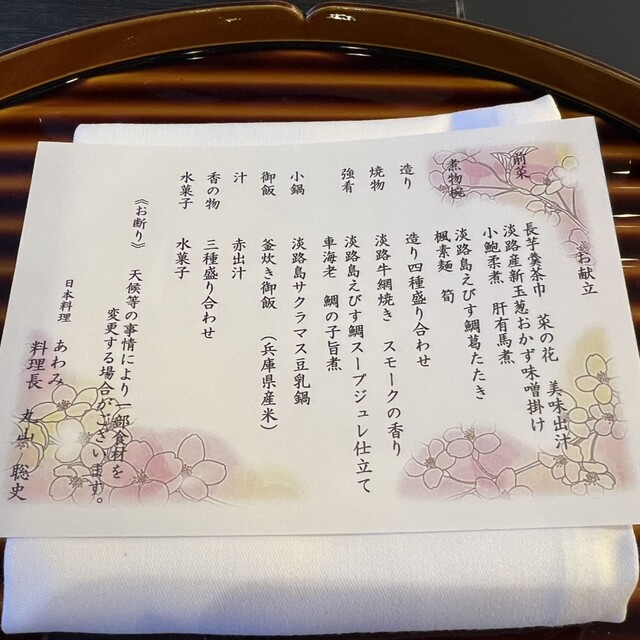 お献立
前菜 長芋羹茶巾 菜の花 美味出汁
淡路産新玉葱おかず味噌掛け
小鮑柔煮 肝有馬煮
煮物椀 淡路島えびす鯛葛たたき
楓素麺 筍
造り 造り四種盛り合わせ
焼物 淡路牛網焼き スモークの香り
強肴 淡路島えびす鯛スープジュレ仕立て
車海老 鯛の子旨煮
小鍋 淡路島サクラマス豆乳鍋
御飯 釜炊き御飯 (兵庫県産米)
汁 赤出汁
香の物 三種盛り合わせ
水菓子 水菓子
《お断り》 天候等の事情により一部食材を
変更する場合がございます。
日本料理 あわみ
料理長 丸山 聡史